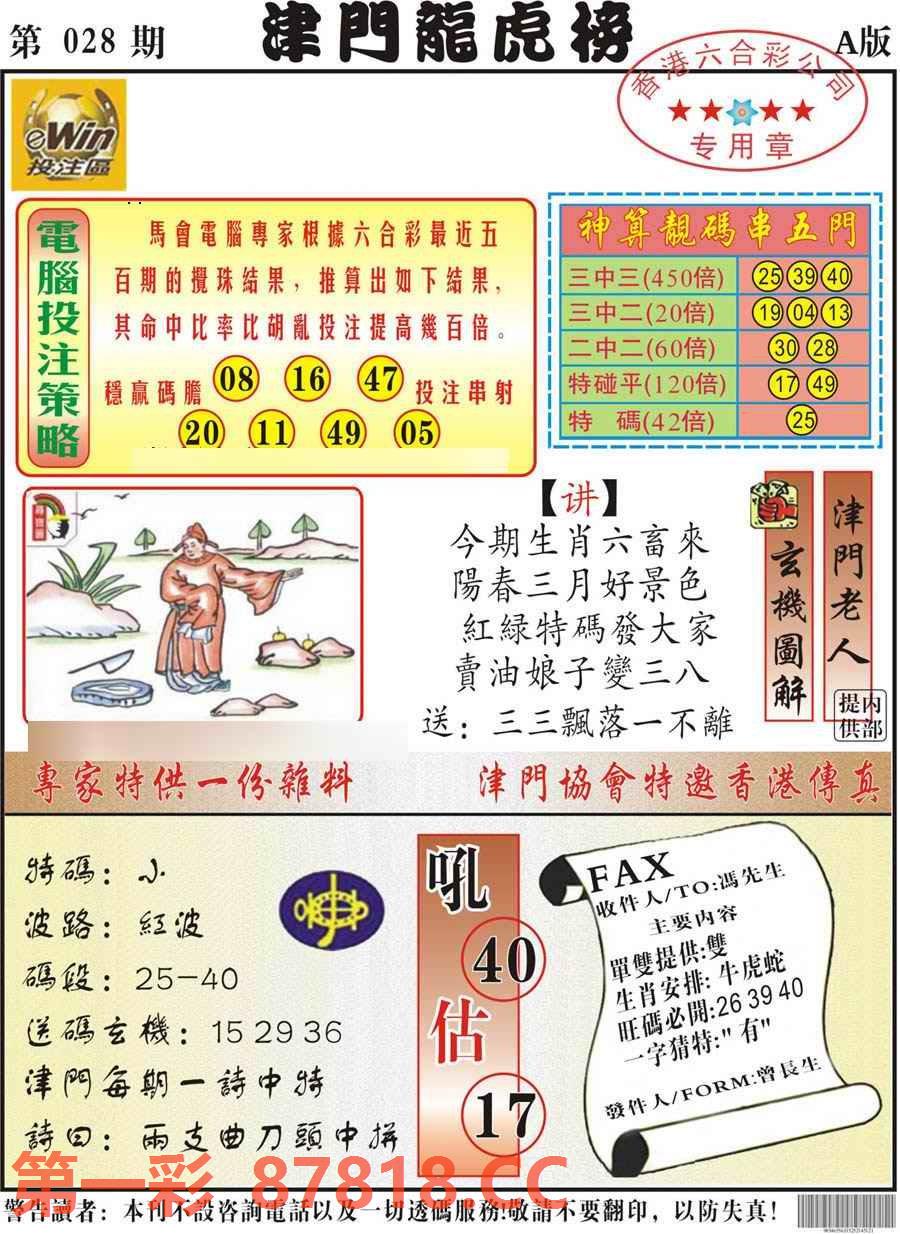 第 028 期
津門龍虎榜
A版
香港六合彩公司
专用章
eWin
投注區
電腦投注策略
馬會電腦專家根據六合彩最近五
百期的攪珠結果，推算出如下結果，
其命中比率比胡亂投注提高幾百倍。
穩贏碼膽 08 16 47 投注串射
20 11 49 05
神算靚碼串五門
三中三(450倍) 25 39 40
三中二(20倍) 19 04 13
二中二(60倍) 30 28
特碰平(120倍) 17 49
特 碼(42倍) 25
【讲】
今期生肖六畜來
陽春三月好景色
紅緑特碼發大家
賣油娘子變三八
送：三三飄落一不離
玄機圖解
津門老人
内部提供
專家特供一份雜料
津門協會特邀香港傳真
特碼：小
波路：紅波
碼段：25-40
送碼玄機：15 29 36
津門每期一詩中特
詩曰：兩支曲刀頭中拼
吼
40
估
17
FAX
收件人/TO:馮先生
主要内容
單雙提供:雙
生肖安排:牛虎蛇
旺碼必開:26 39 40
一字猜特:"有"
發件人/FORM:曾長生
第一彩 87818.CC
警告讀者：本刊不設咨詢電話以及一切透碼服務!敬請不要翻印，以防失真!